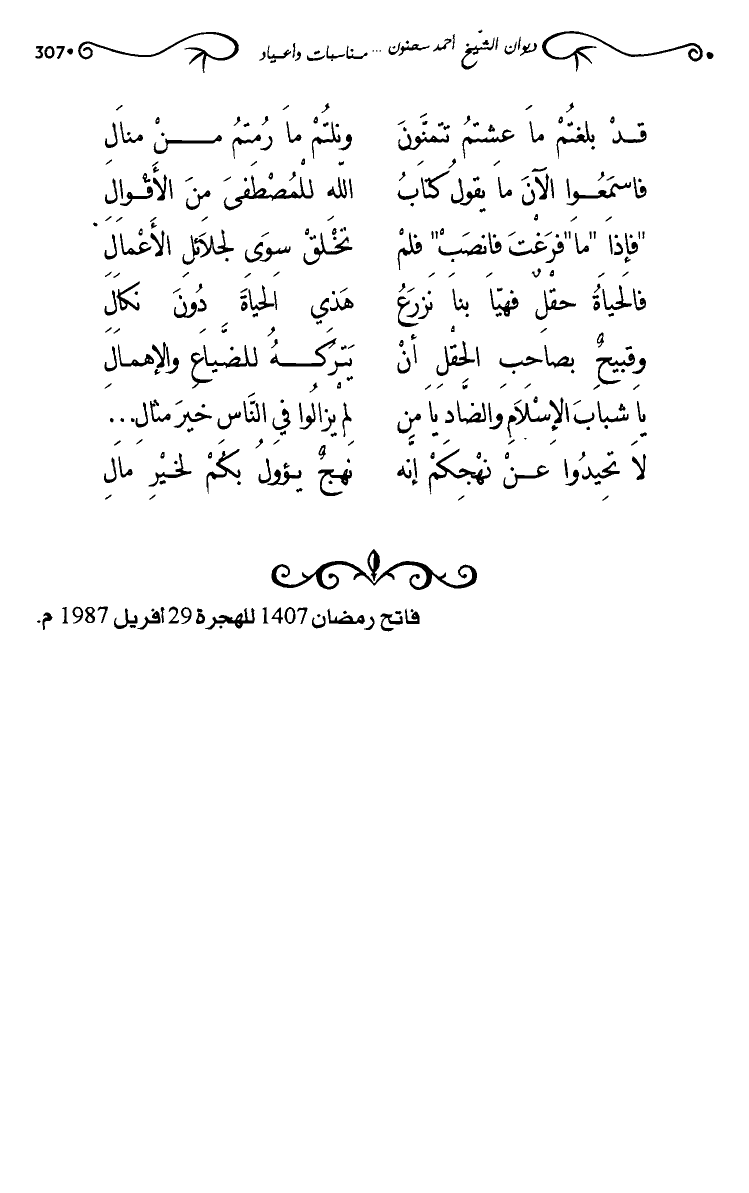 ديوان الشيخ أحمد سحنون ... مناسبات وأعياد 307
قدْ بلغتُمْ ما عشتمُ تتمنَّونَ ونلتُمْ ما رُمتمُ منْ منالِ
فاسمَعُوا الآنَ ما يقولُ كتابُ اللّه للْمُصْطفىَ منَ الأَقْوالِ
"فإذا "ما"فرَغْتَ فانصَبْ" فلمْ تخْلقْ سوَى لجلائلِ الأَعْمالِ
فالحياةُ حقْلٌ فهيّا بنا نزرَعُ هَذِي الحياةَ دُونَ نكالِ
وقبيحٌ بصاحبِ الحقْلِ أنْ يَترُكهُ للضيَّاعِ والإهمالِ
يا شبابَ الإسْلامِ والضَّاد يا من لمْ يزالُوا في النَّاس خيرَ مثالِ...
لا تحِيدُوا عنْ نهْجِكمْ إنه نهجٌ يؤولُ بكُمْ لخيْرِ مآلِ
فاتح رمضان 1407 للهجرة 29 أفريل 1987 م.